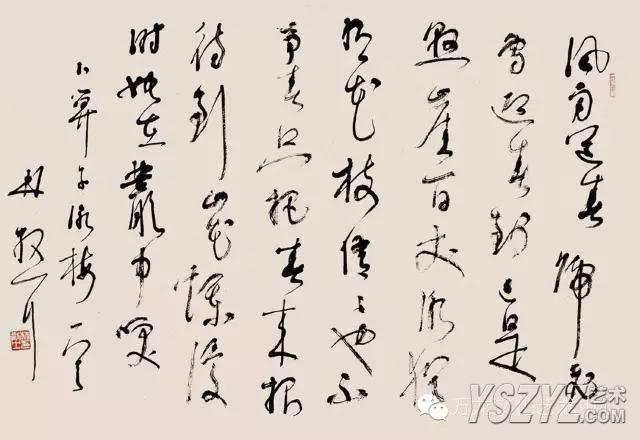 风雨送春归飛
雪迎春到已是
悬崖百丈冰猶
有花枝俏俏也不
争春只把春来报
待到山花爛漫
时她在叢中笑
卜算子詠梅
YSZYZ艺术
.com